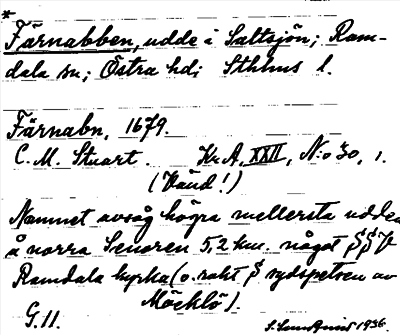 *
Färnabben, udde i Saltsjön; Ram-
dala sn; Östra hd; Sthlms l.
Färnabn, 1679.
C. M. Stuart. Kr. A, XXII, N:o 30, 1.
(Vänd!)
Namnet avsåg högra mellersta udden
å norra Senoren 5,2 km. något
Ramdala kyrka (o. rakt sydspetsen av
Möcklö).
G. 11. 1936.